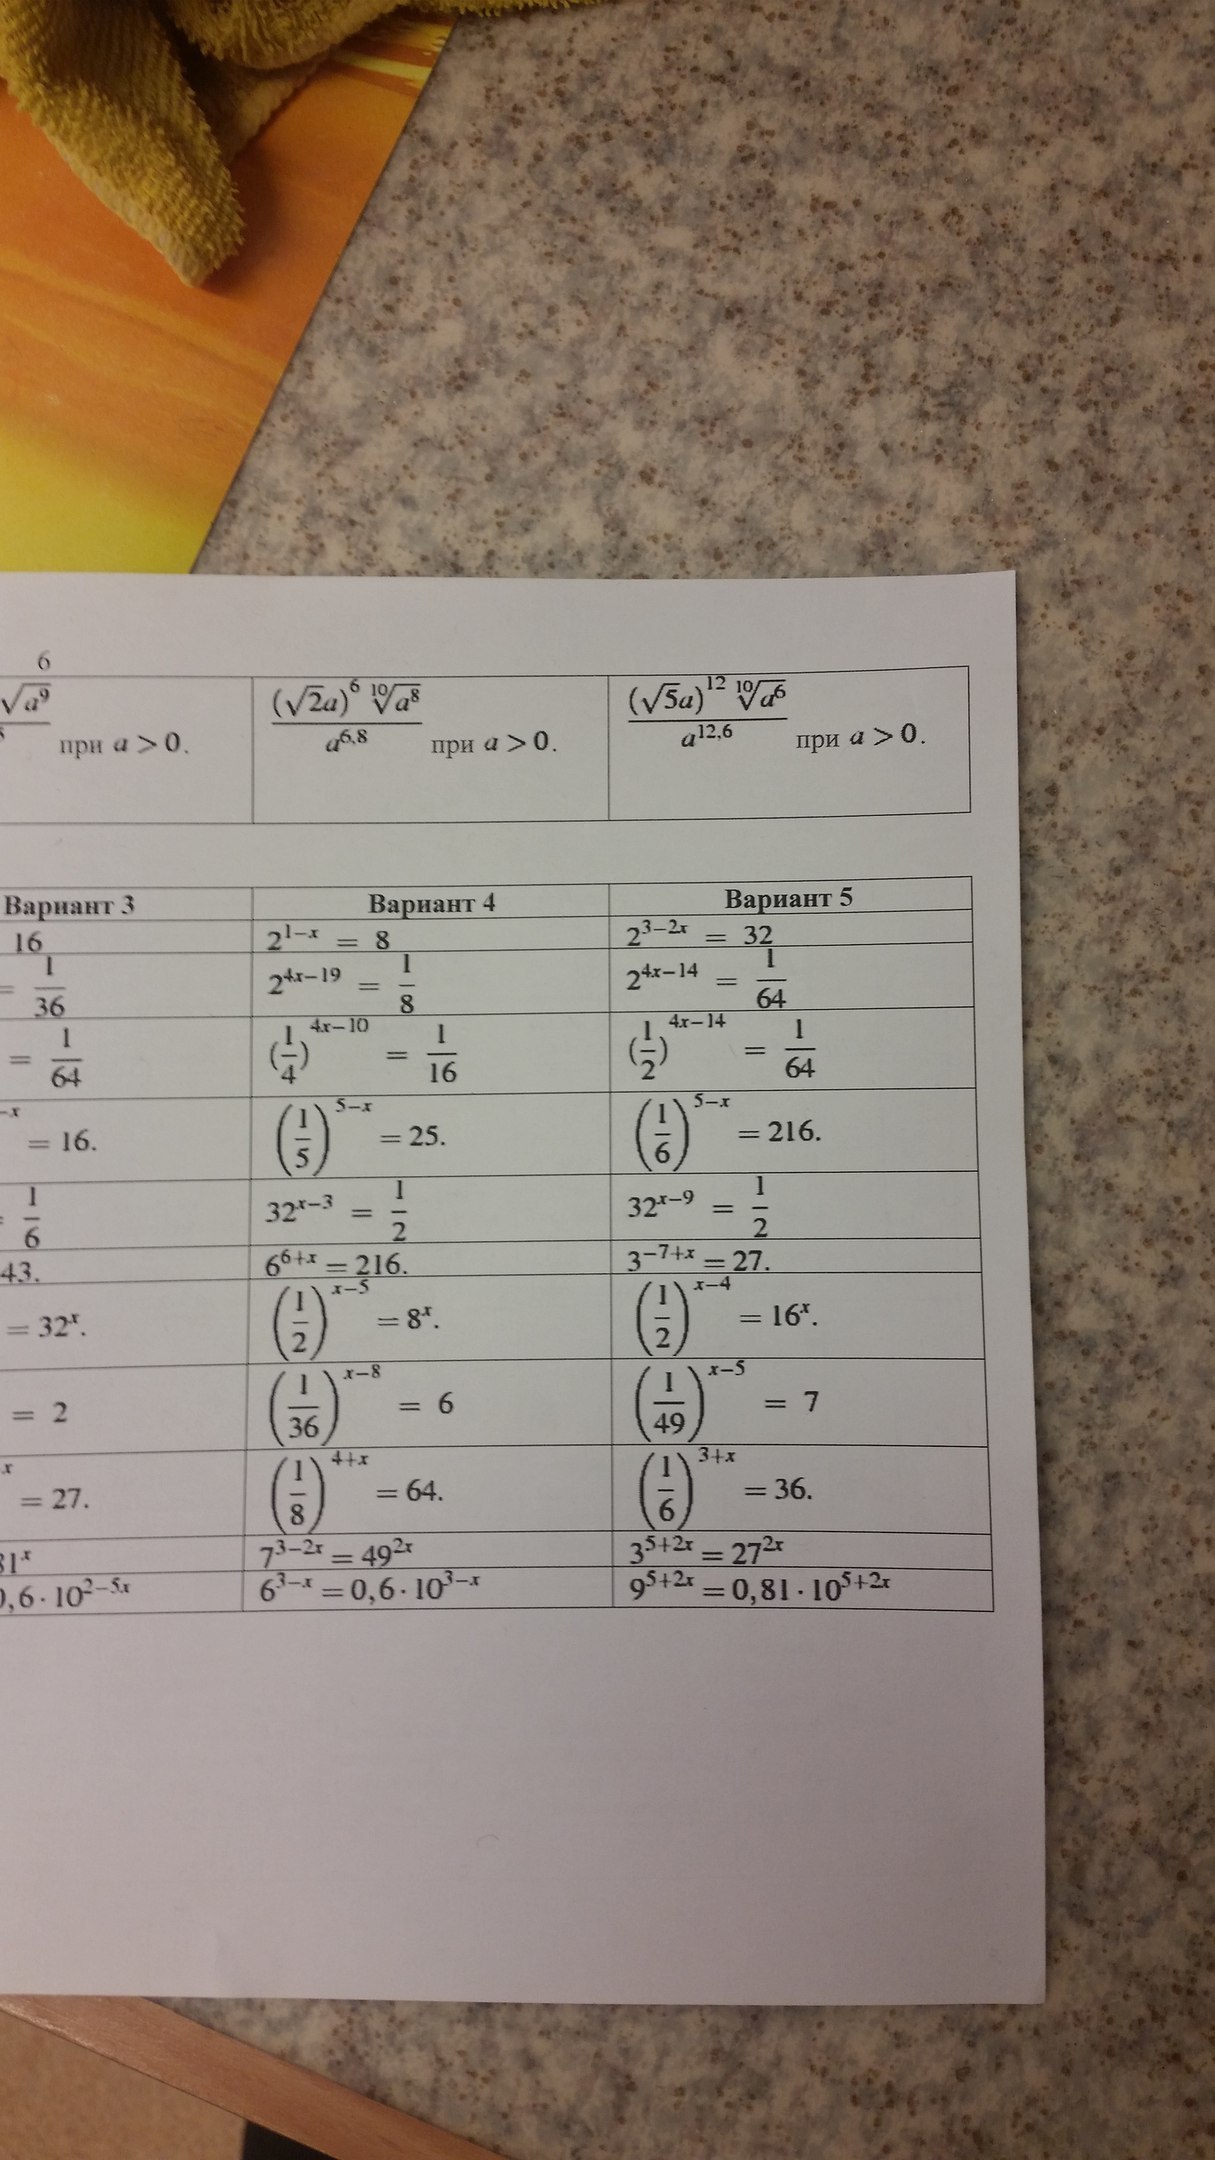 6
√a⁹ при a > 0.
(√2a)⁶ ¹⁰√a⁸ / a⁶,⁸ при a > 0.
(√5a)¹² ¹⁰√a⁶ / a¹²,⁶ при a > 0.
Вариант 3 Вариант 4 Вариант 5
16 2^(1−x) = 8 2^(3−2x) = 32
= 1/36 2^(4x−19) = 1/8 2^(4x−14) = 1/64
= 1/64 (1/4)^(4x−10) = 1/16 (1/2)^(4x−14) = 1/64
−x = 16. (1/5)^(5−x) = 25. (1/6)^(5−x) = 216.
= 1/6 32^(x−3) = 1/2 32^(x−9) = 1/2
43. 6^(6+x) = 216. 3^(−7+x) = 27.
= 32^x. (1/2)^(x−5) = 8^x. (1/2)^(x−4) = 16^x.
= 2 (1/36)^(x−8) = 6 (1/49)^(x−5) = 7
x = 27. (1/8)^(4+x) = 64. (1/6)^(3+x) = 36.
81^x 7^(3−2x) = 49^(2x) 3^(5+2x) = 27^(2x)
0,6 · 10^(2−5x) 6^(3−x) = 0,6 · 10^(3−x) 9^(5+2x) = 0,81 · 10^(5+2x)